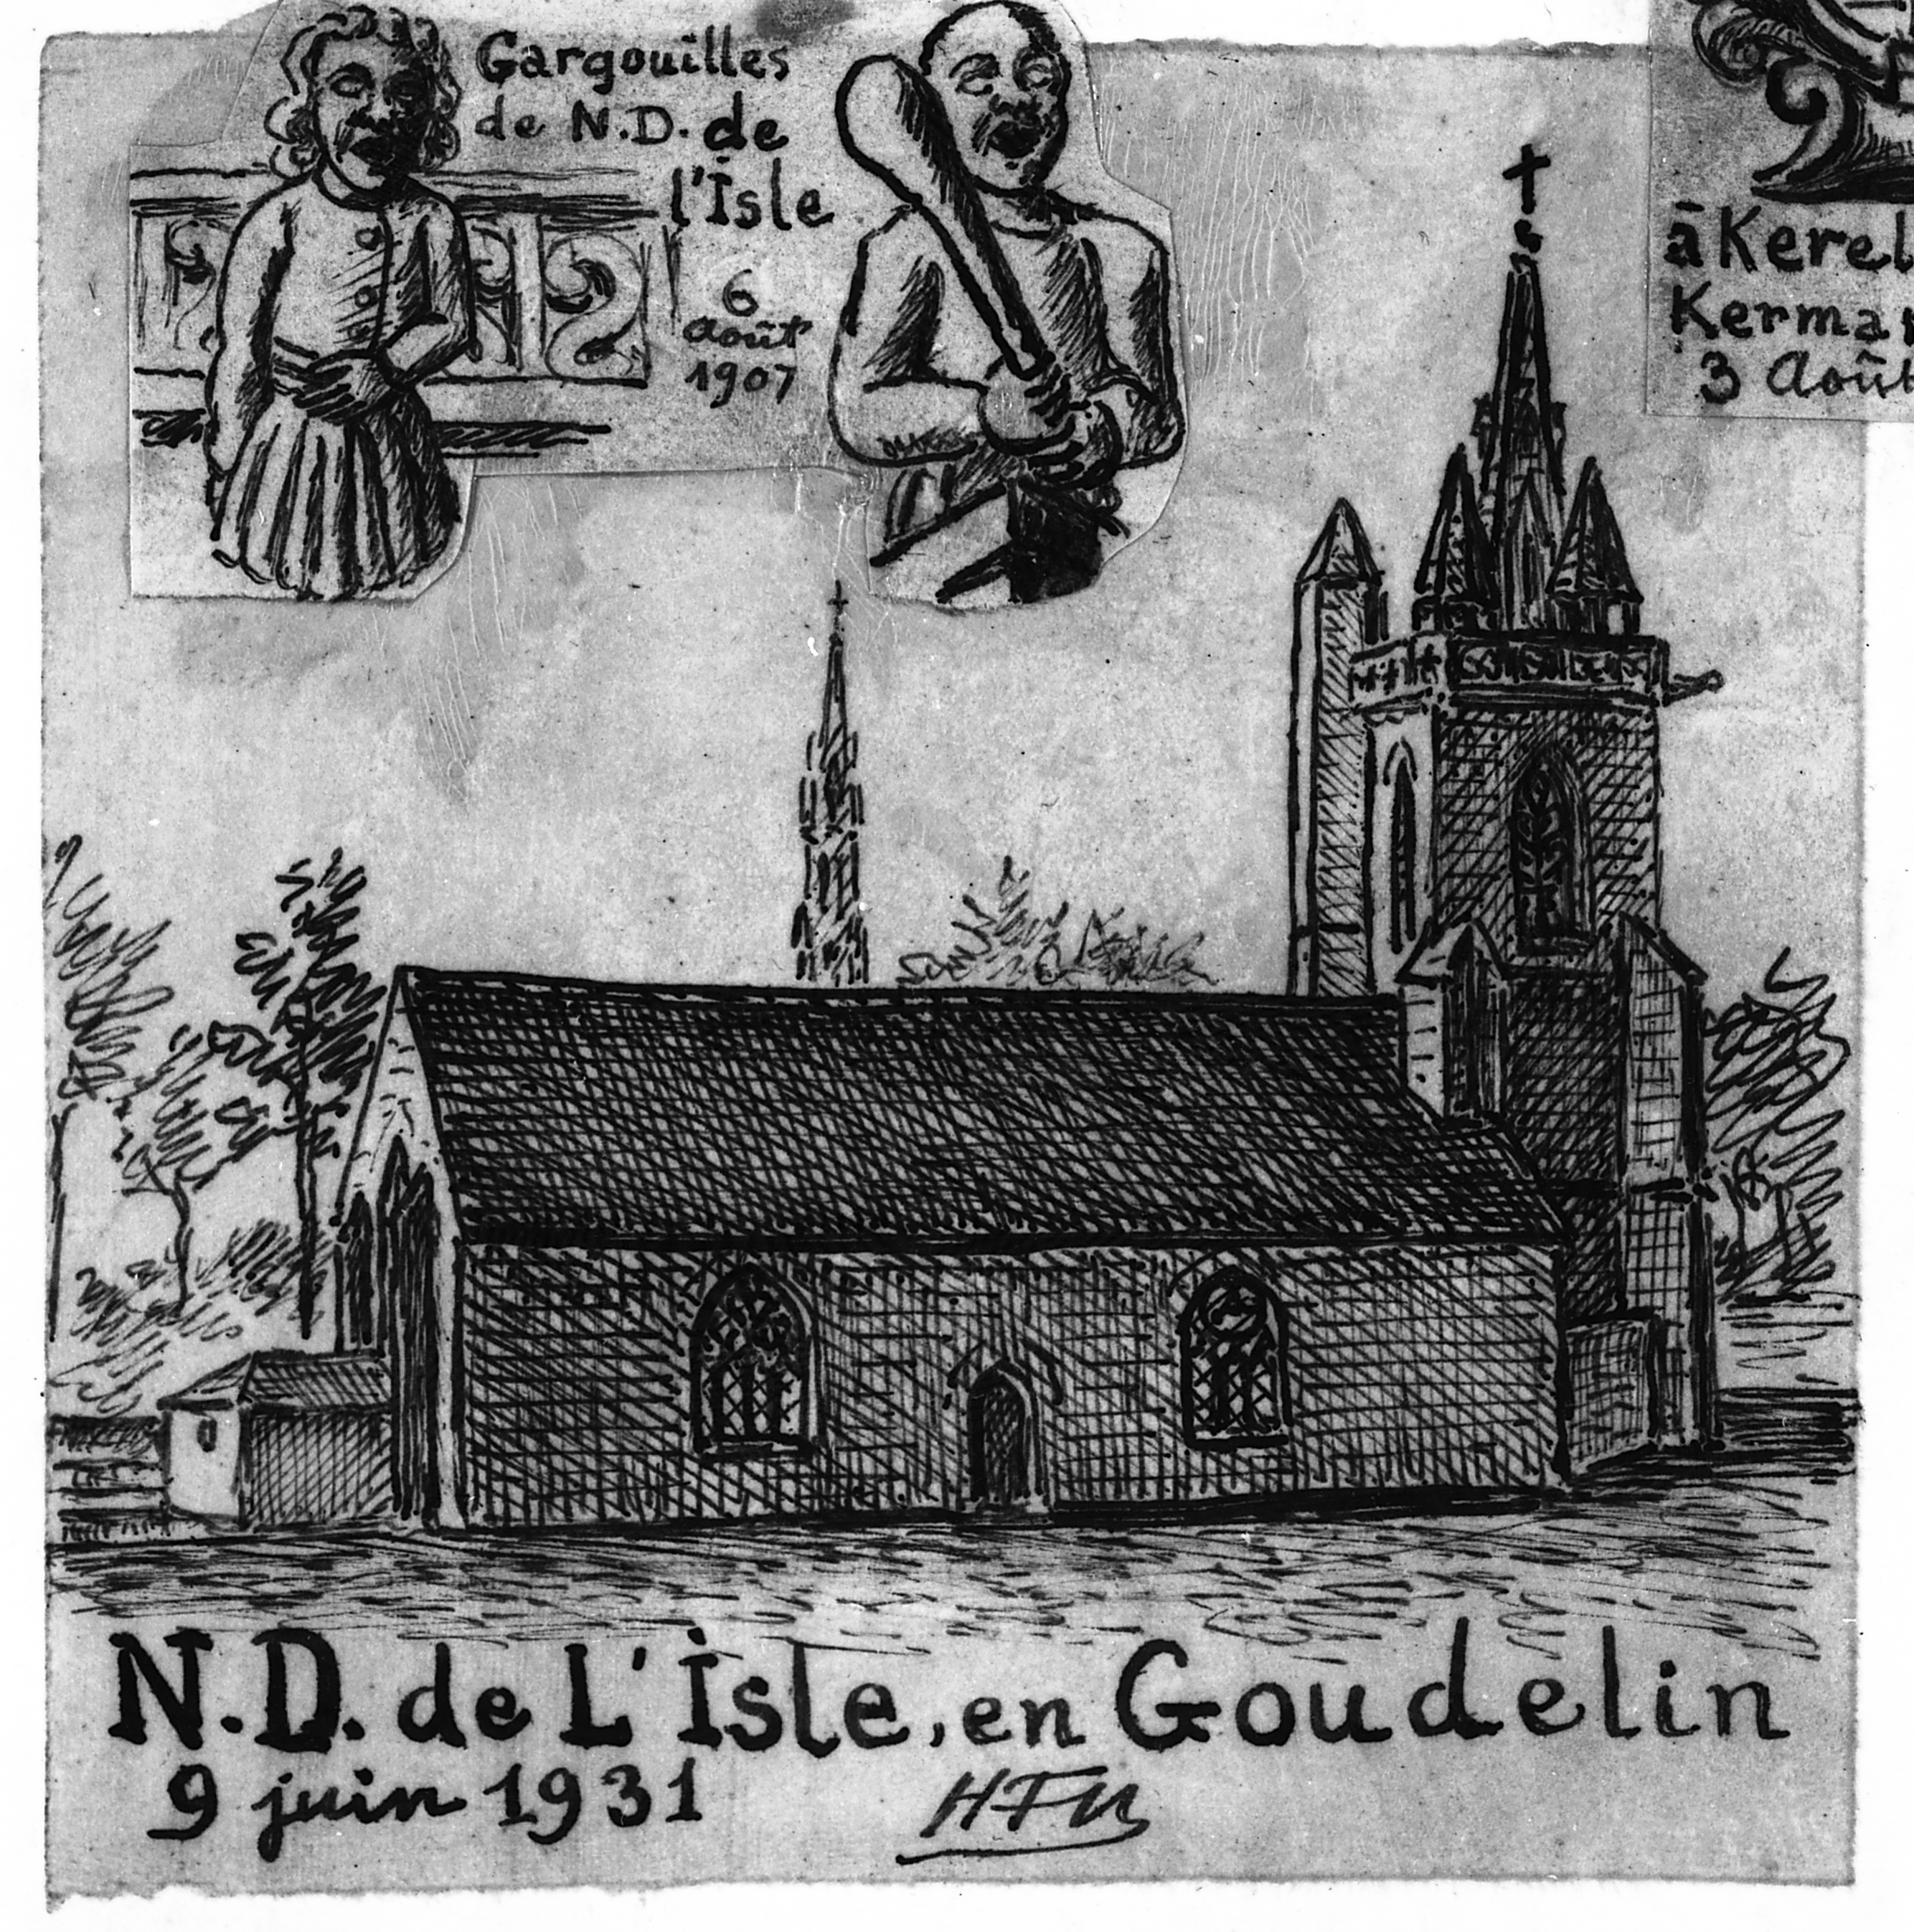 Gargouilles
de N.D. de
l'Isle
6
Août
1907
à
3 Août
N.D. de L'Isle, en Goudelin
9 juin 1931